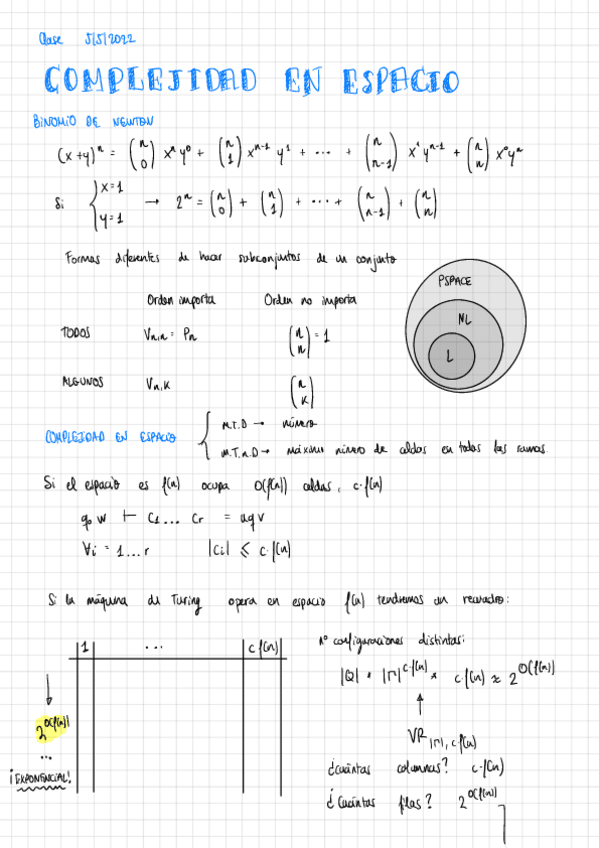 Clase 5/5/2022
COMPLEJIDAD EN ESPACIO
BINOMIO DE NEWTON
(x+y)^n = (n 0) x^n y^0 + (n 1) x^{n-1} y^1 + ... + (n n-1) x^1 y^{n-1} + (n n) x^0 y^n
Si { x=1 y=1 → 2^n = (n 0) + (n 1) + ... + (n n-1) + (n n)
Formas diferentes de hacer subconjuntos de un conjunto
Orden importa Orden no importa
TODOS V_{n,n} = P_n (n n) = 1
ALGUNOS V_{n,k} (n k)
PSPACE
NL
L
COMPLEJIDAD EN ESPACIO { M.T.D → número
M.T.n.D → máximo número de celdas en todas las ramas.
Si el espacio es f(n) ocupa O(f(n)) celdas, c·f(n)
q₀ w ⊢ C₁ ... Cr = uqv
∀i = 1...r |Ci| ⩽ c·f(n)
Si la máquina de Turing opera en espacio f(n) tendremos un recuadro:
1 ... c f(n)
↓
2^{O(f(n))}
...
¡EXPONENCIAL!
nº configuraciones distintas:
|Q| * |Γ|^{c f(n)} * c f(n) ≈ 2^{O(f(n))}
↑
VR_{|Γ|, c f(n)}
¿cuántas columnas? c·f(n)
¿Cuántas filas? 2^{O(f(n))}